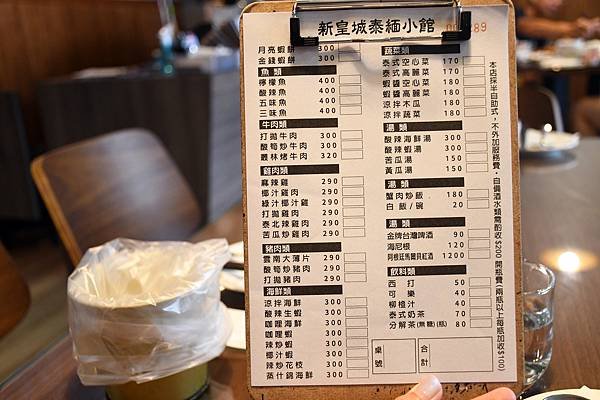 新皇城泰緬小館
月亮蝦餅 300
金錢蝦餅 300
魚類
檸檬魚 400
酸辣魚 400
五味魚 400
三味魚 400
牛肉類
打拋牛肉 300
酸筍炒牛肉 300
叢林烤牛肉 320
雞肉類
麻辣雞 290
椰汁雞肉 290
綠汁椰汁雞 290
打拋雞肉 290
泰北辣雞肉 290
苦瓜炒雞肉 290
豬肉類
雲南大薄片 290
酸筍炒豬肉 290
打拋豬肉 290
海鮮類
涼拌海鮮 300
酸辣生蝦 300
咖哩海鮮 300
咖哩蝦 300
辣炒蝦 300
椰汁蝦 300
辣炒花枝 300
蒸什錦海鮮 300
蔬菜類
泰式空心菜 170
泰式高麗菜 170
蝦醬空心菜 180
蝦醬高麗菜 180
涼拌木瓜 180
涼拌蔬菜 180
湯類
酸辣海鮮湯 300
酸辣蝦湯 300
苦瓜湯 150
黃瓜湯 150
湯類
蟹肉炒飯 180
白飯/碗 20
湯類
金牌台灣啤酒 90
海尼根 100
阿根廷馬爾貝紅酒 1200
飲料類
西打 50
可樂 40
柳橙汁 40
泰式奶茶 70
分解茶(無糖)(瓶) 80
桌號
合計
本店採半自助式，不外加服務費，自備酒水類需酌收$200開瓶費(兩瓶以上每瓶加收$100)